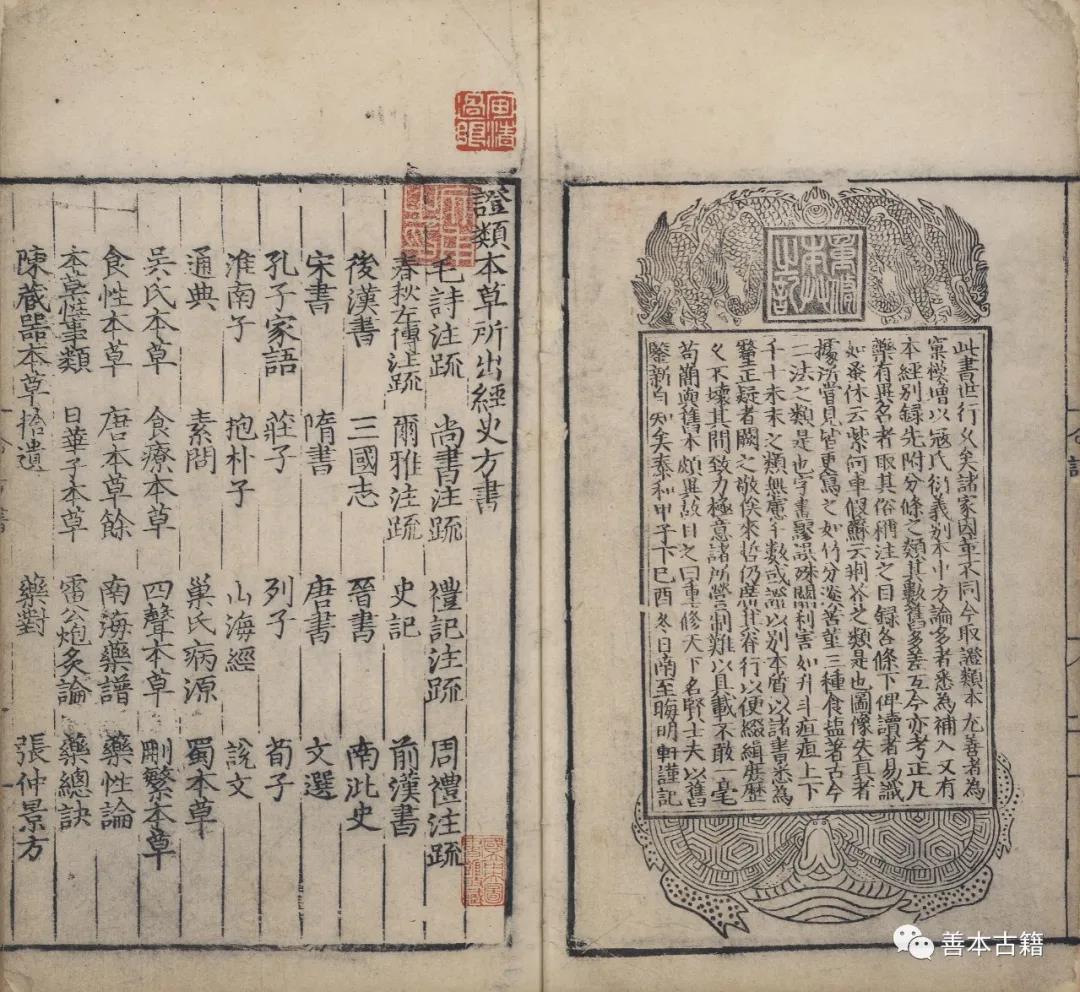 重修
本草
之記
此書世行久矣諸家因革不同今取證類本尤善者為
窠模增以寇氏衍義別本中方論多者悉為補入又有
本經別錄先附分條之類其數舊多差互今亦考正凡
藥有異名者取其俗稱注之目錄各條下俾讀者易識
如蚤休云紫何車假蘇云荆芥之類是也圖像失真者
據所嘗見皆更寫之如竹分淡苦菫三種食塩著古今
二法之類是也字畫謬誤殊關利害如升斗疸疽上下
千十未末之類無慮千數或證以別本質以諸書悉為
釐正疑者闕之敬俟來哲仍廣其脊行以便綴緝庶歷
久不壞其間致力極意諸所營制難以具載不敢一毫
苟簡與舊本頗異故目之曰重修天下名賢士夫以舊
鑒新自知矣泰和甲子下己酉冬日南至晦明軒謹記
證類本草所出經史方書
毛詩注䟽 尚書注䟽 禮記注䟽 周禮注䟽
春秋左傳注䟽 爾雅注䟽 史記 前漢書
後漢書 三國志 晉書 南北史
宋書 隋書 唐書 文選
孔子家語 莊子 列子 荀子
淮南子 抱朴子 山海經 說文
通典 素問 巢氏病源 蜀本草
吳氏本草 食療本草 四聲本草 刪繁本草
食性本草 唐本草餘 南海藥譜 藥性論
本草性事類 日華子本草 雷公炮炙論 藥總訣
陳藏器本草拾遺 藥對 張仲景方
善本古籍